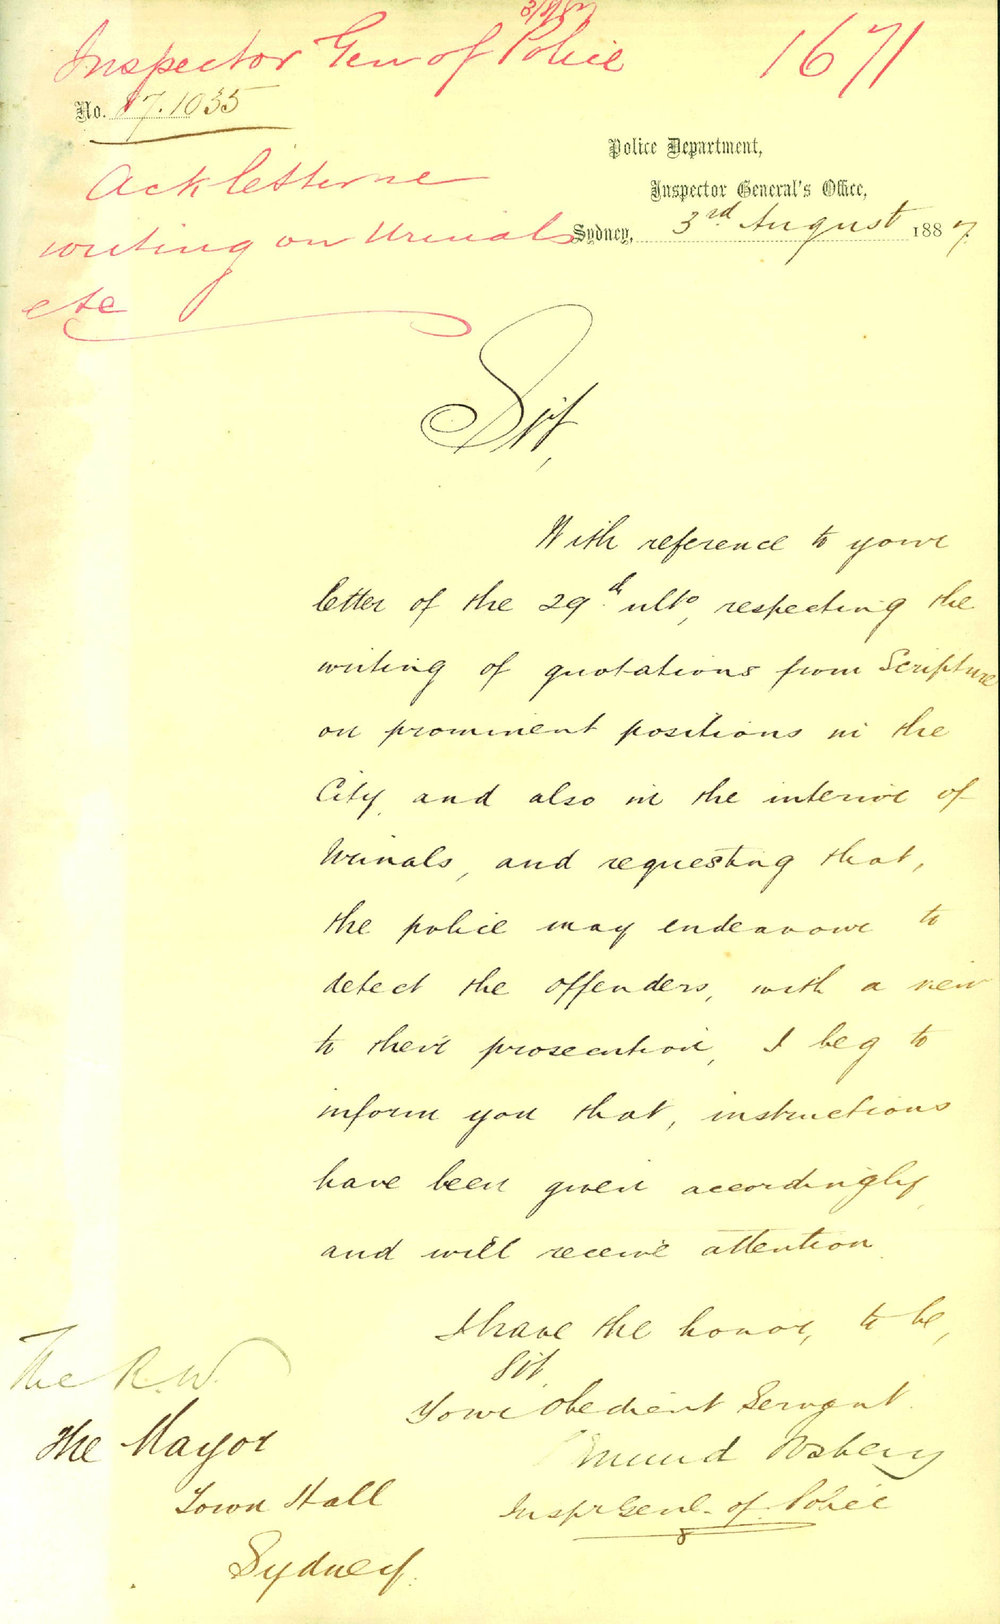 3/8/87
Inspector Gen of Police
1671
No. 87.1035
Police Department,
Inspector General's Office,
Sydney, 3rd August 1887.
Ack letter re
writing on Urinals
etc
Sir,
With reference to your
letter of the 29th ulto, respecting the
writing of quotations from Scripture
on prominent positions in the
City, and also in the interior of
Urinals, and requesting that,
the police may endeavour to
detect the offenders, with a view
to their prosecution, I beg to
inform you that, instructions
have been given accordingly,
and will receive attention.
I have the honor, to be,
Sir,
Your Obedient Servant.
Edmund Fosbery
Inspr Genl. of Police
The R.W.
The Mayor
Town Hall
Sydney.